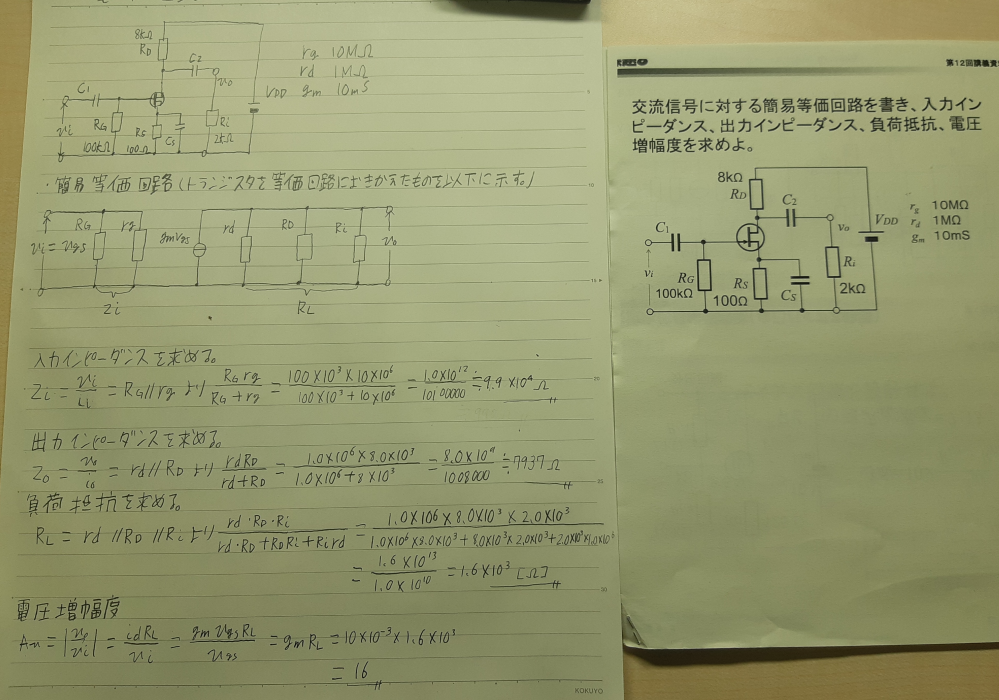 8kΩ
RD
C2
rg 10MΩ
rd 1MΩ
gm 10mS
vo
VDD
C1
vi
RG
100kΩ
RS
100Ω
CS
Ri
2kΩ
・簡易等価回路(トランジスタを等価回路におきかえたものを以下に示す。)
vi = vgs
RG
rg
gmvgs
rd
RD
Ri
vo
Zi
RL
入力インピーダンスを求める。
Zi = vi/ii = RG//rg より RG rg/RG + rg = 100×10³×10×10⁶/100×10³+10×10⁶ = 1.0×10¹²/10100000 ≒ 9.9×10⁴ Ω
出力インピーダンスを求める。
Zo = vo/io = rd//RD より rdRD/rd+RD = 1.0×10⁶×8.0×10³/1.0×10⁶+8×10³ = 8.0×10⁹/1008000 ≒ 7937 Ω
負荷抵抗を求める。
RL = rd //RD //Ri より rd・RD・Ri/rd・RD+RDRi+Rird = 1.0×106×8.0×10³×2.0×10³/1.0×10⁶×8.0×10³+8.0×10³×2.0×10³+2.0×10³×1.0×10⁶
= 1.6×10¹³/1.0×10¹⁰ = 1.6×10³ [Ω]
電圧増幅度
Av = |vo/vi| = idRL/vi = gm vgs RL/vgs = gm RL = 10×10⁻³×1.6×10³
= 16
KOKUYO
第12回講義資
交流信号に対する簡易等価回路を書き、入力イン
ピーダンス、出力インピーダンス、負荷抵抗、電圧
増幅度を求めよ。
8kΩ
RD
C2
rg 10MΩ
rd 1MΩ
gm 10mS
vo
VDD
C1
vi
RG
100kΩ
RS
100Ω
CS
Ri
2kΩ